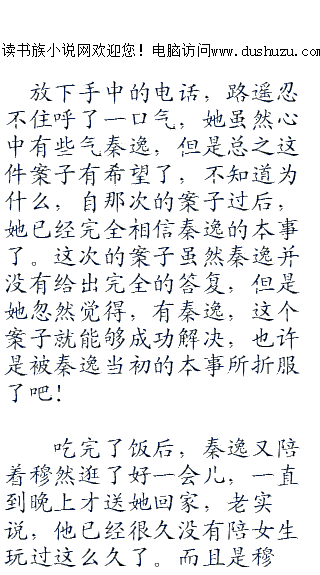 读书族小说网欢迎您！电脑访问www.dushuzu.com
放下手中的电话，路遥忍
不住呼了一口气，她虽然心
中有些气秦逸，但是总之这
件案子有希望了，不知道为
什么，自那次的案子过后，
她已经完全相信秦逸的本事
了。这次的案子虽然秦逸并
没有给出完全的答复，但是
她忽然觉得，有秦逸，这个
案子就能够成功解决，也许
是被秦逸当初的本事所折服
了吧！
吃完了饭后，秦逸又陪
着穆然逛了好一会儿，一直
到晚上才送她回家，老实
说，他已经很久没有陪女生
玩过这么久了。而且是穆